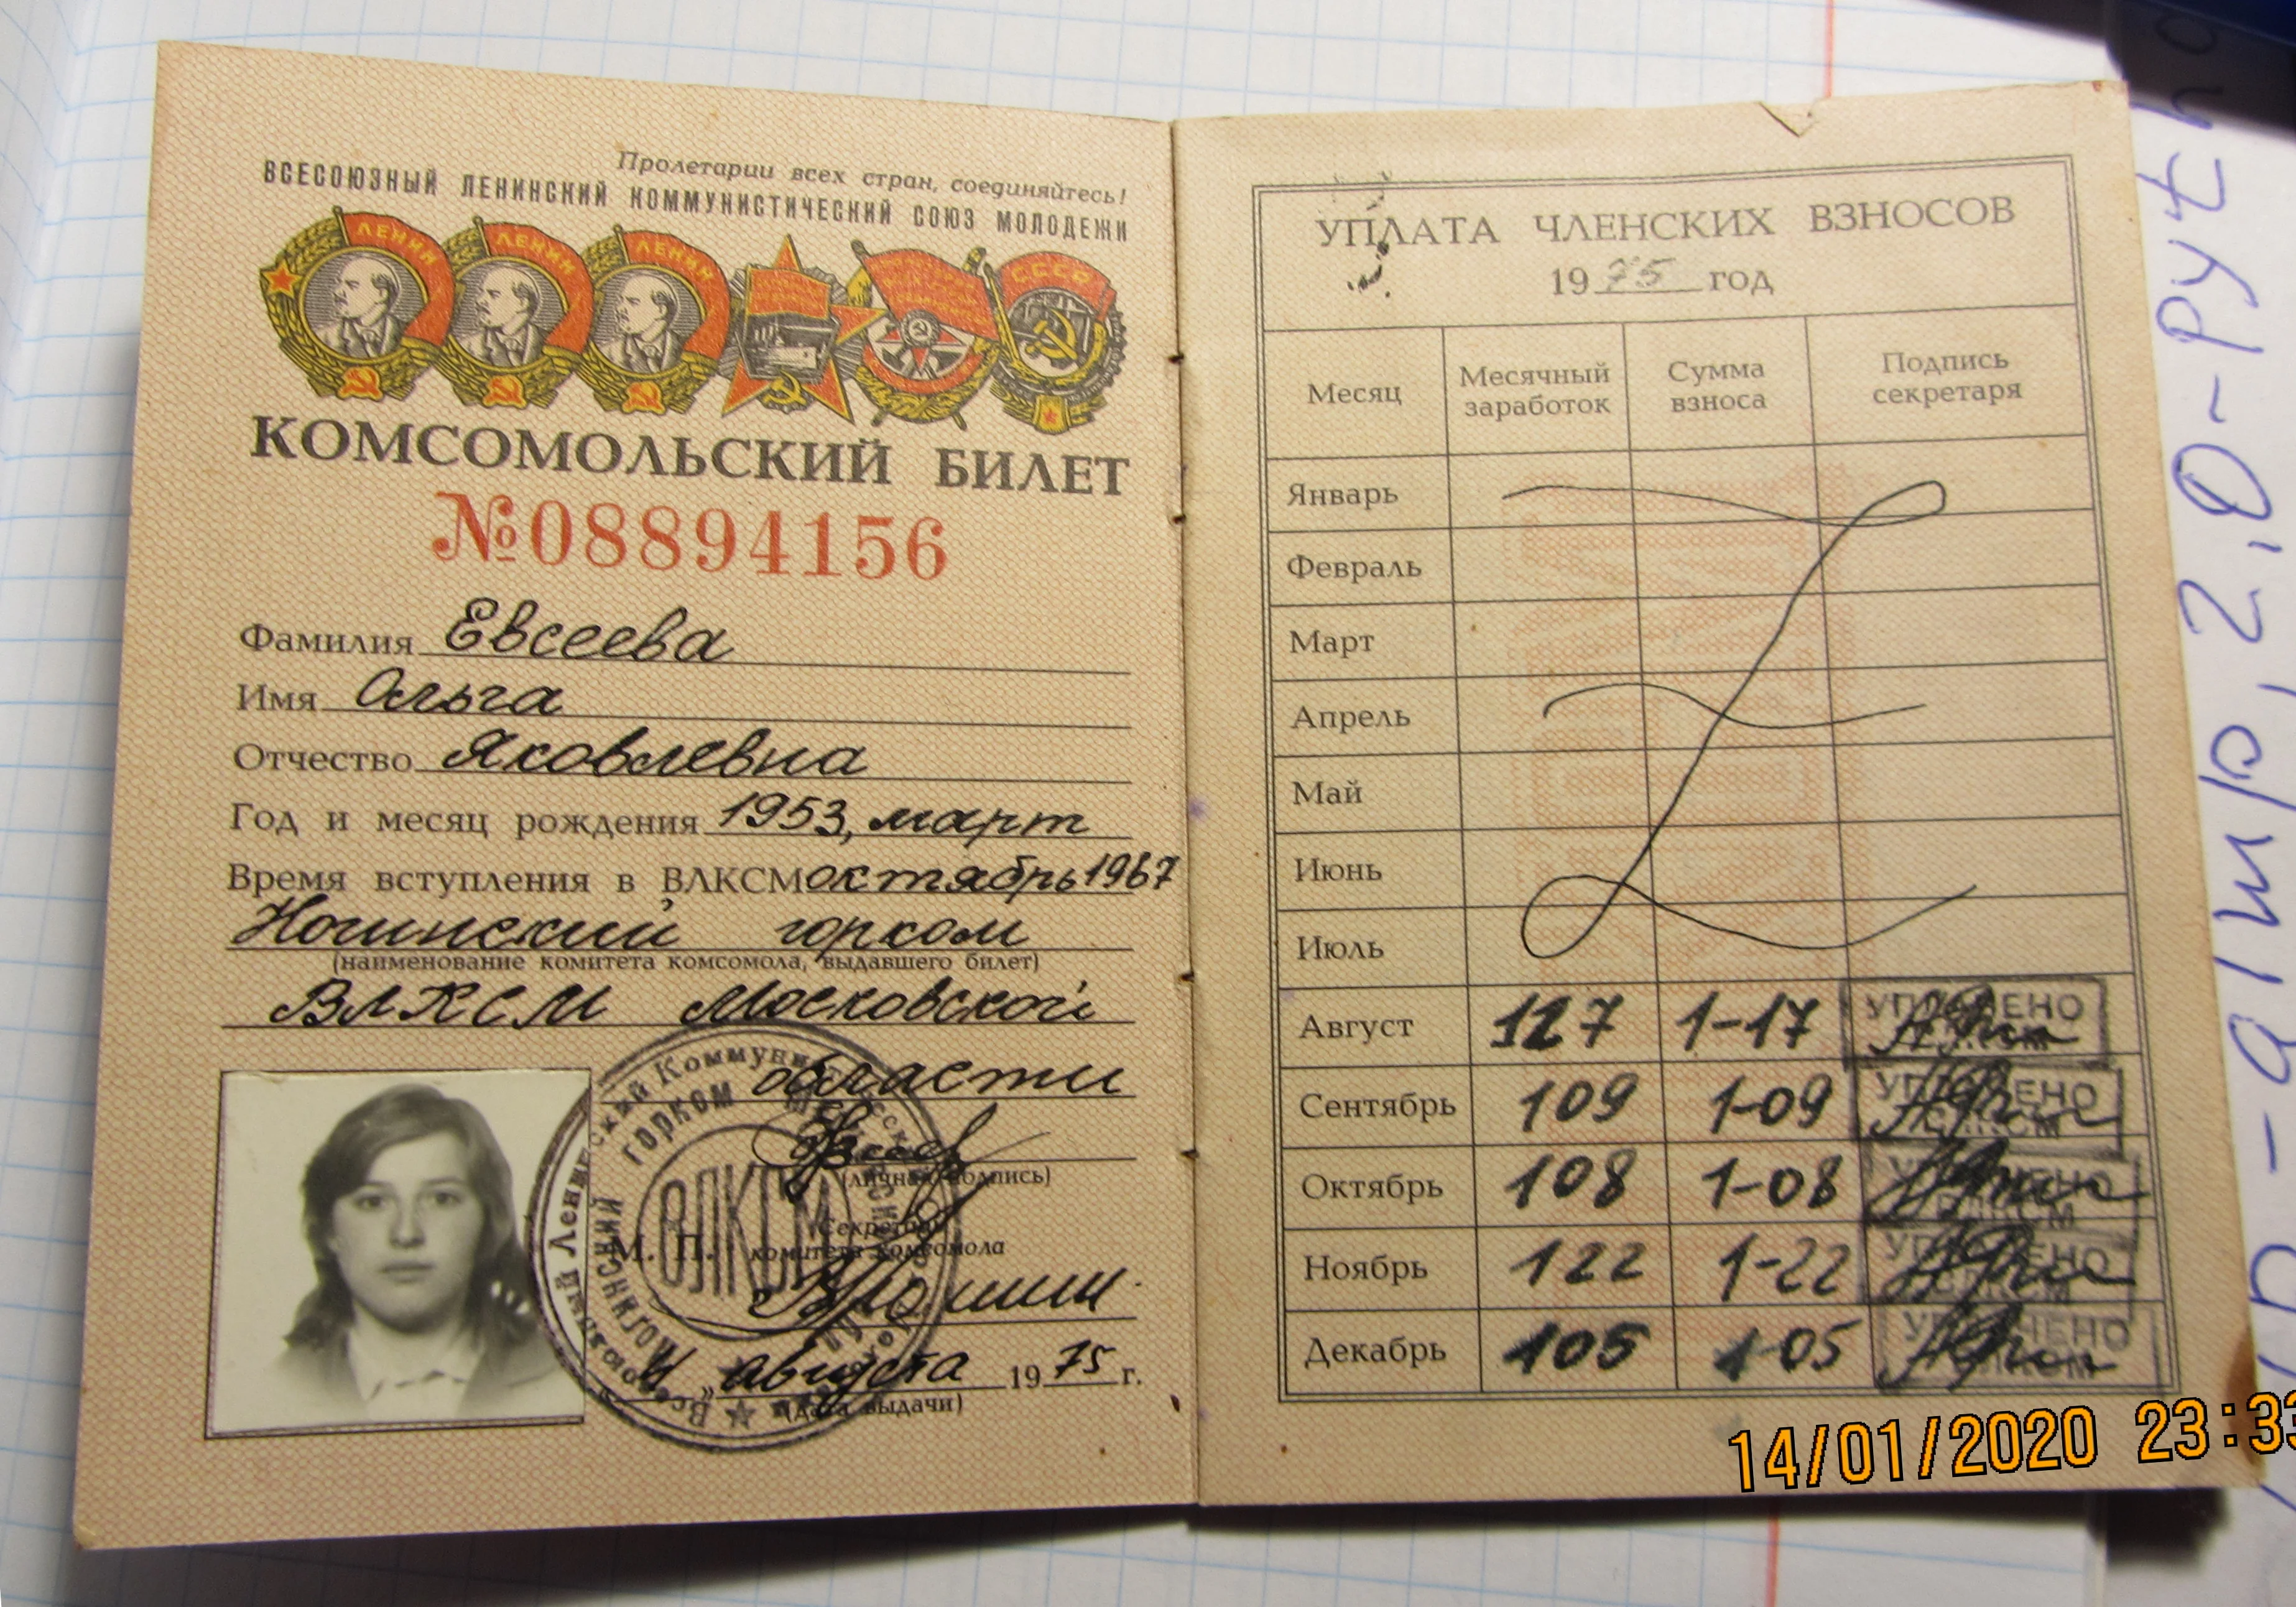 Пролетарии всех стран, соединяйтесь!
ВСЕСОЮЗНЫЙ ЛЕНИНСКИЙ КОММУНИСТИЧЕСКИЙ СОЮЗ МОЛОДЕЖИ
ЛЕНИН ЛЕНИН ЛЕНИН СССР
КОМСОМОЛЬСКИЙ БИЛЕТ
№08894156
Фамилия Евсеева
Имя Ольга
Отчество Яковлевна
Год и месяц рождения 1953, март
Время вступления в ВЛКСМ октябрь 1967
Ногинский горком
(наименование комитета комсомола, выдавшего билет)
ВЛКСМ Московской
области
(личная подпись)
Секретарь
М. П. комитета комсомола
августа 1975 г.
(дата выдачи)
ГОРКОМ
НОГИНСКИЙ
ВЛКСМ
УПЛАТА ЧЛЕНСКИХ ВЗНОСОВ
1975 год
Месяц Месячный заработок Сумма взноса Подпись секретаря
Январь
Февраль
Март
Апрель
Май
Июнь
Июль
Август 117 1-17 УПЛАЧЕНО ВЛКСМ
Сентябрь 109 1-09 УПЛАЧЕНО ВЛКСМ
Октябрь 108 1-08 УПЛАЧЕНО ВЛКСМ
Ноябрь 122 1-22 УПЛАЧЕНО ВЛКСМ
Декабрь 105 1-05 УПЛАЧЕНО ВЛКСМ
14/01/2020 23:33